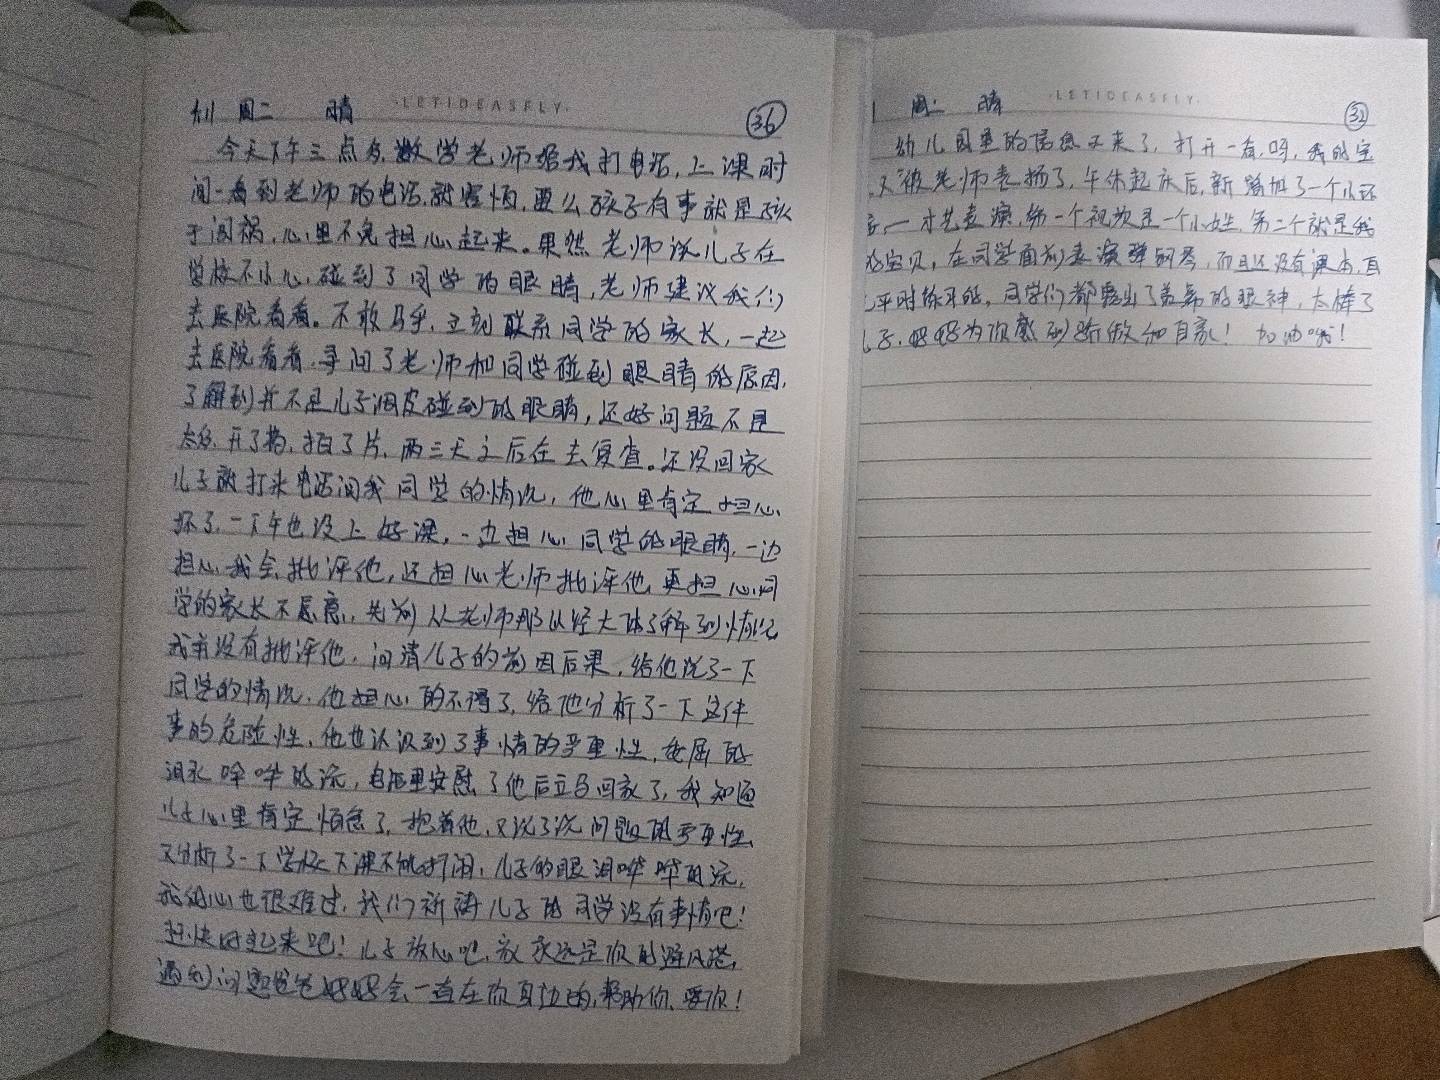 周二 晴 ·LETIDEASFLY· 36
今天下午三点多,数学老师给我打电话,上课时
间一看到老师的电话就害怕,要么孩子有事就是孩
子闯祸,心里不免担心起来。果然老师说儿子在
学校不小心碰到了同学的眼睛,老师建议我们
去医院看看。不敢马乎,立刻联系同学的家长,一起
去医院看看,寻问了老师和同学碰到眼睛的原因,
了解到并不是儿子调皮碰到的眼睛,还好问题不是
太多,开了药,拍了片,两三天之后在去复查。还没回家
儿子就打来电话问我同学的情况,他心里肯定担心
坏了,一下午也没上好课,一边担心同学的眼睛,一边
担心我会批评他,还担心老师批评他,更担心同
学的家长不愿意,先前从老师那以经大体了解到情况
我并没有批评他,问清儿子的前因后果,给他说了一下
同学的情况,他担心的不得了,给他分析了一下这件
事的危险性,他也认识到了事情的严重性,委屈的
泪水哗哗的流,电话里安慰了他后立马回家了,我知道
儿子心里肯定怕急了,抱着他,又说了说问题的严重性,
又分析了一下学校下课不能打闹,儿子的眼泪哗哗的流,
我的心也很难过,我们祈祷儿子的同学没有事情吧!
赶快好起来吧!儿子放心吧,家永远是你的避风港,
遇到问题爸爸妈妈会一直在你身边的,帮助你、爱你!
周二 晴 ·LETIDEASFLY· 32
幼儿园里的信息又来了,打开一看,呀,我的宝
又被老师表扬了,午休起床后,新增加了一个小环
一才艺表演,第一个视频是一个小姐,第二个就是我
的宝贝,在同学面前表演弹钢琴,而且还没有课本,
平时练习的,同学们都露出了羡慕的眼神,太棒了
子,妈妈为你感到骄傲和自豪! 加油哦!